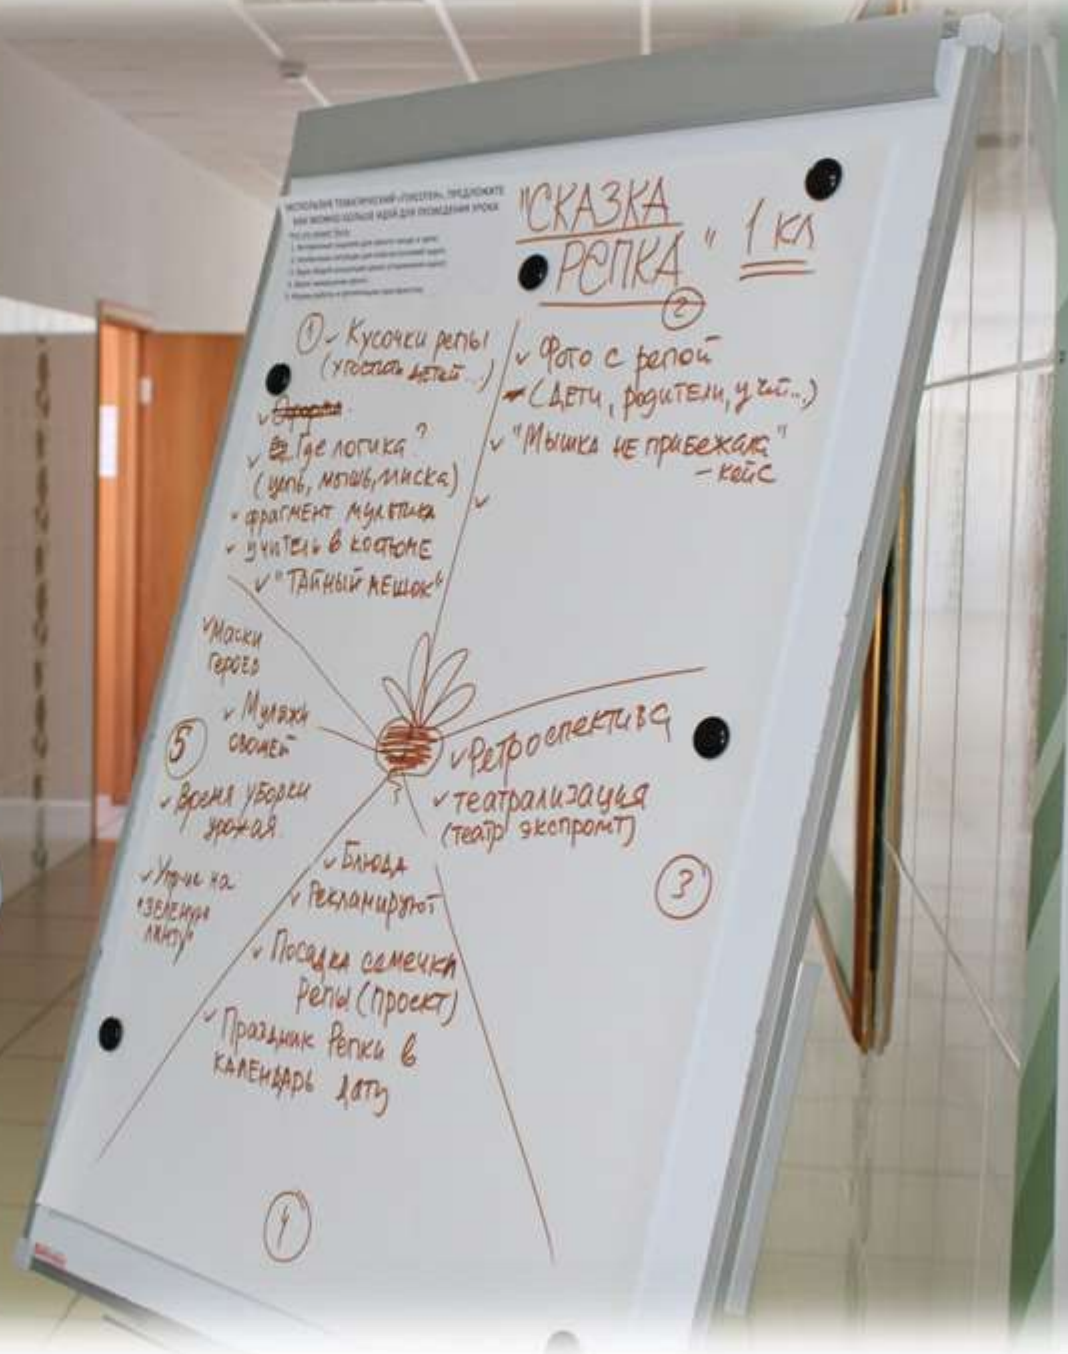 ИСПОЛЬЗУЯ ТЕМАТИЧЕСКИЙ ПРЕДЛОЖИТЕ
КАК МОЖНО БОЛЬШЕ ИДЕЙ ДЛЯ ПРОВЕДЕНИЯ УРОКА
"СКАЗКА
РЕПКА" 1 КЛ
1 ✓ Кусочки репы
(угостить детей...)
✓ Где логика?
(цепь, мышь, миска)
фрагмент мультика
✓ учитель в костюме
✓ "ТАЙНЫЙ МЕШОК"
2
✓ Фото с репой
(Дети, родители, учит...)
✓ "Мышка не прибежала"
– кейс
✓
✓ Ретроспектива
✓ театрализация
(театр экспромт)
3
✓ Блюда
✓ Рекламируют
✓ Посадка семечки
репы (проект)
✓ Праздник Репки в
КАЛЕНДАРЬ дату
4
✓ Маски
героев
✓ Муляжи
овощей
5
✓ Время уборки
урожая
✓ на
"ЗЕЛЕНУЮ
ЛЕНТУ"